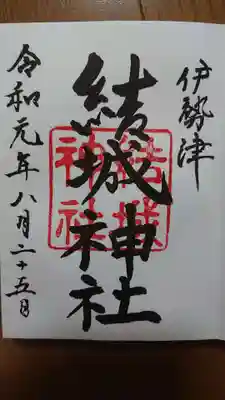 伊勢津
結城神社
結城
神社
令和元年八月二十五日